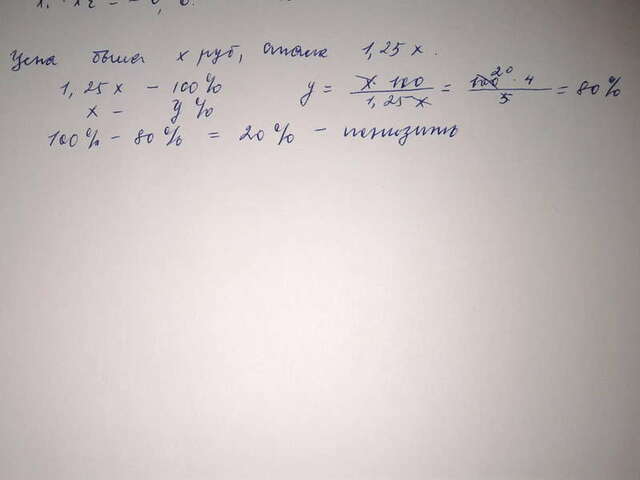 Цена была x руб, стала 1,25 x.
1,25x – 100%
x – y%
y = x·100 / 1,25x = 100·4 / 5 = 80%
20
100% – 80% = 20% – понизить